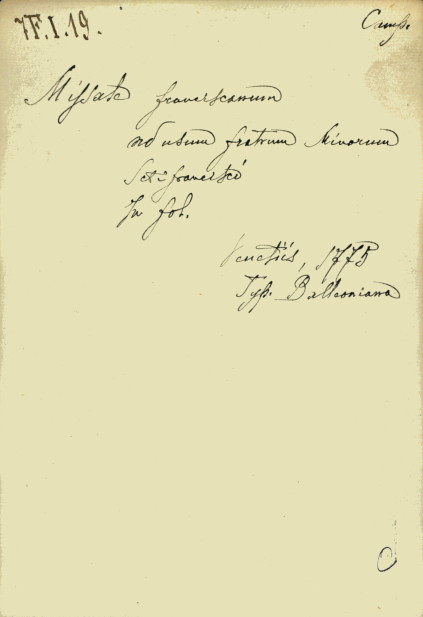 7F.I.19.
Camp.
Missale franciscanum
ad usum fratrum Minorum
Scti francisci
In fol.
Venetiis, 1775
Typ. Balleoniana
C